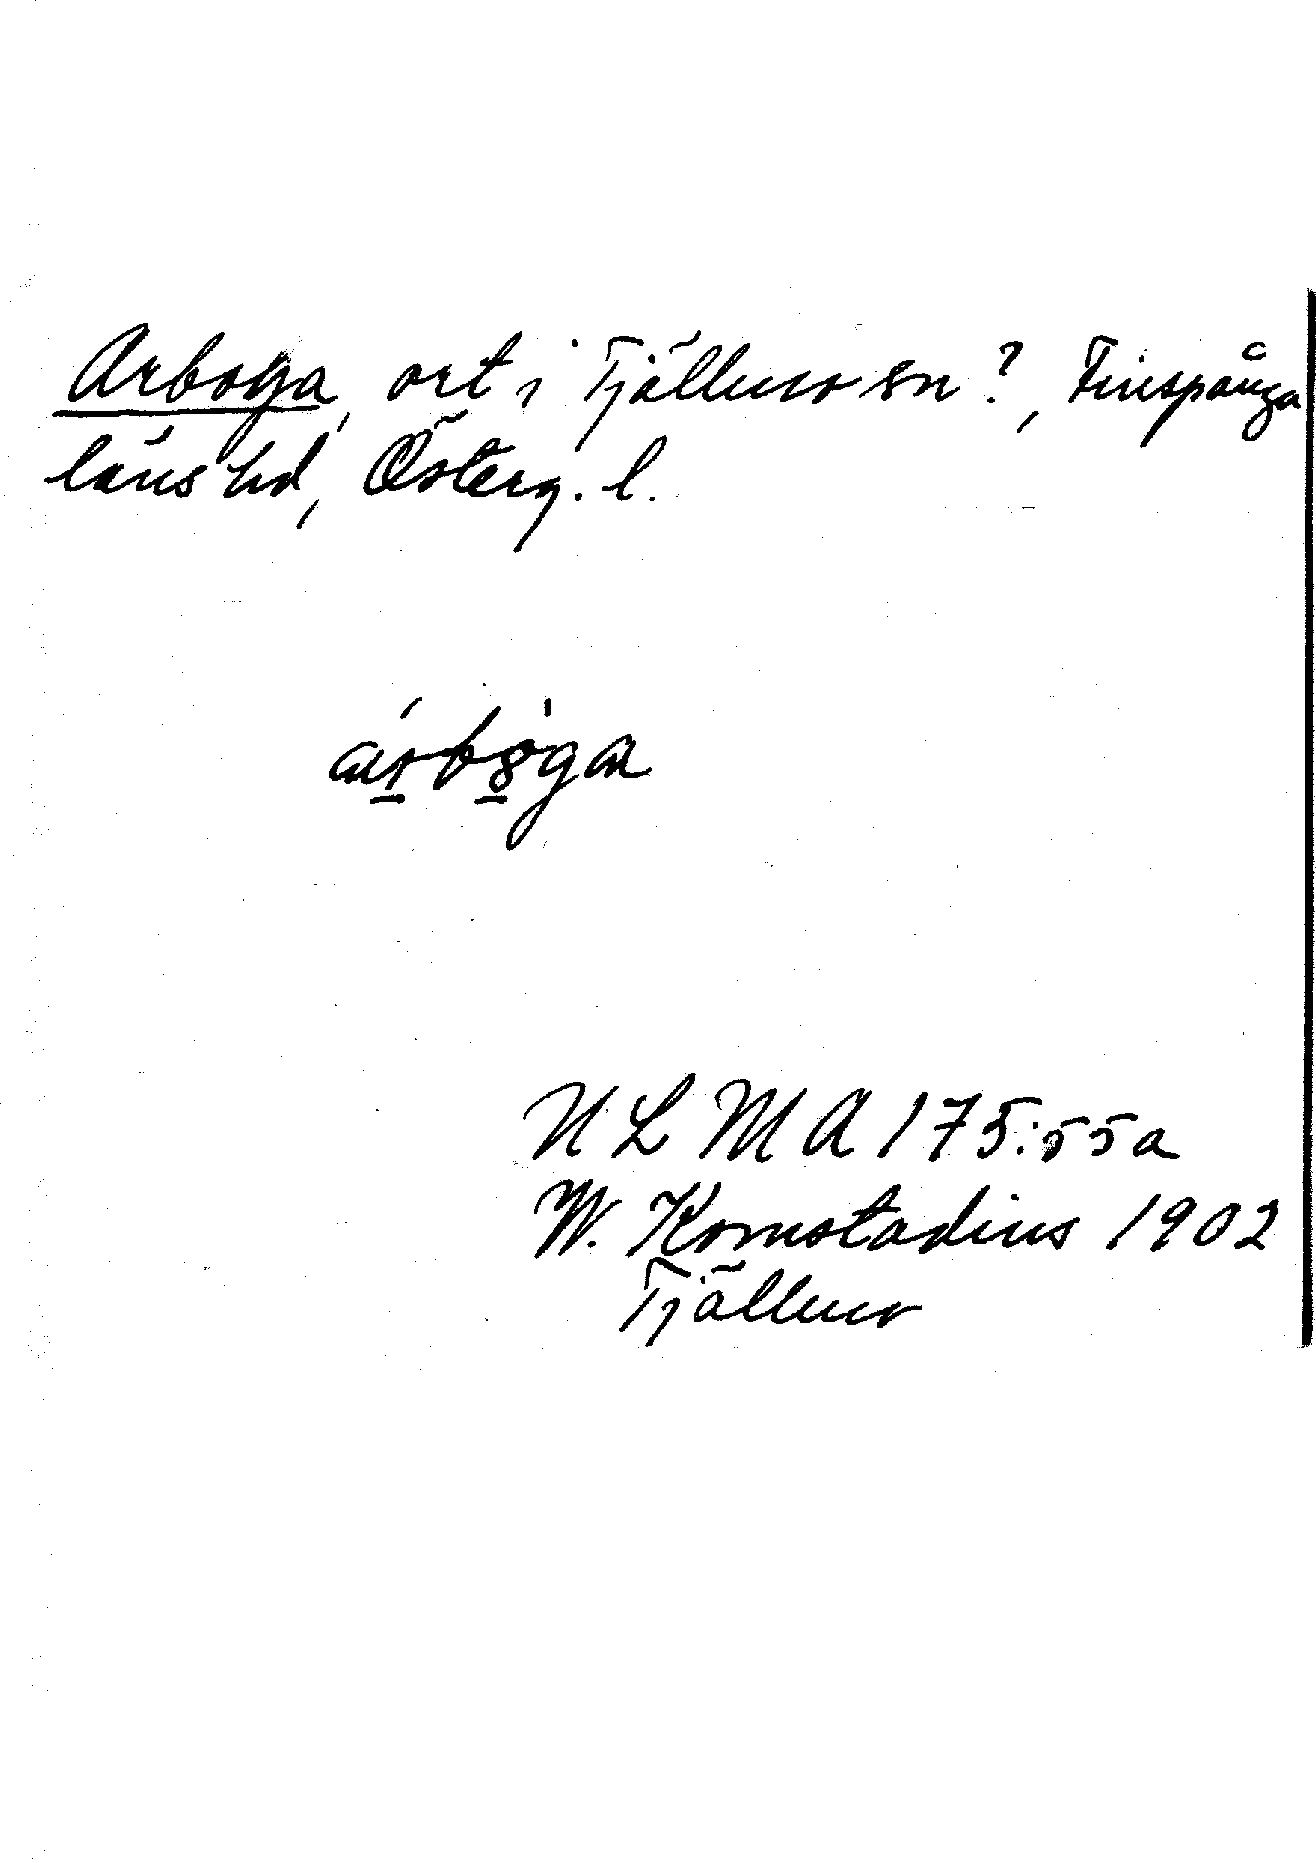 Arboga, ort i Tjällmo sn?, Finspånga
läns hd, Österg. l.
árbòga
ULMA 175:55a
W. Kornstadius 1902
Tjällmo